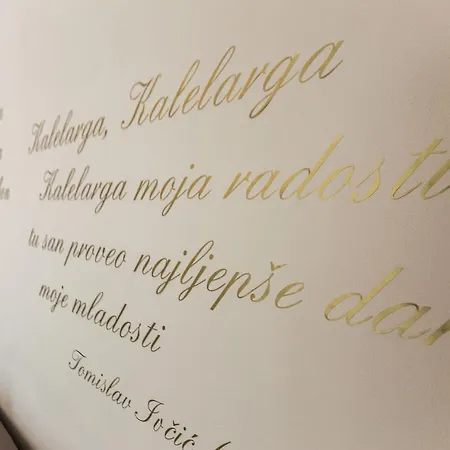 Kalelarga, Kalelarga
Kalelarga moja radosti
tu san proveo najljepše dan
moje mladosti
Tomislav Ivčić